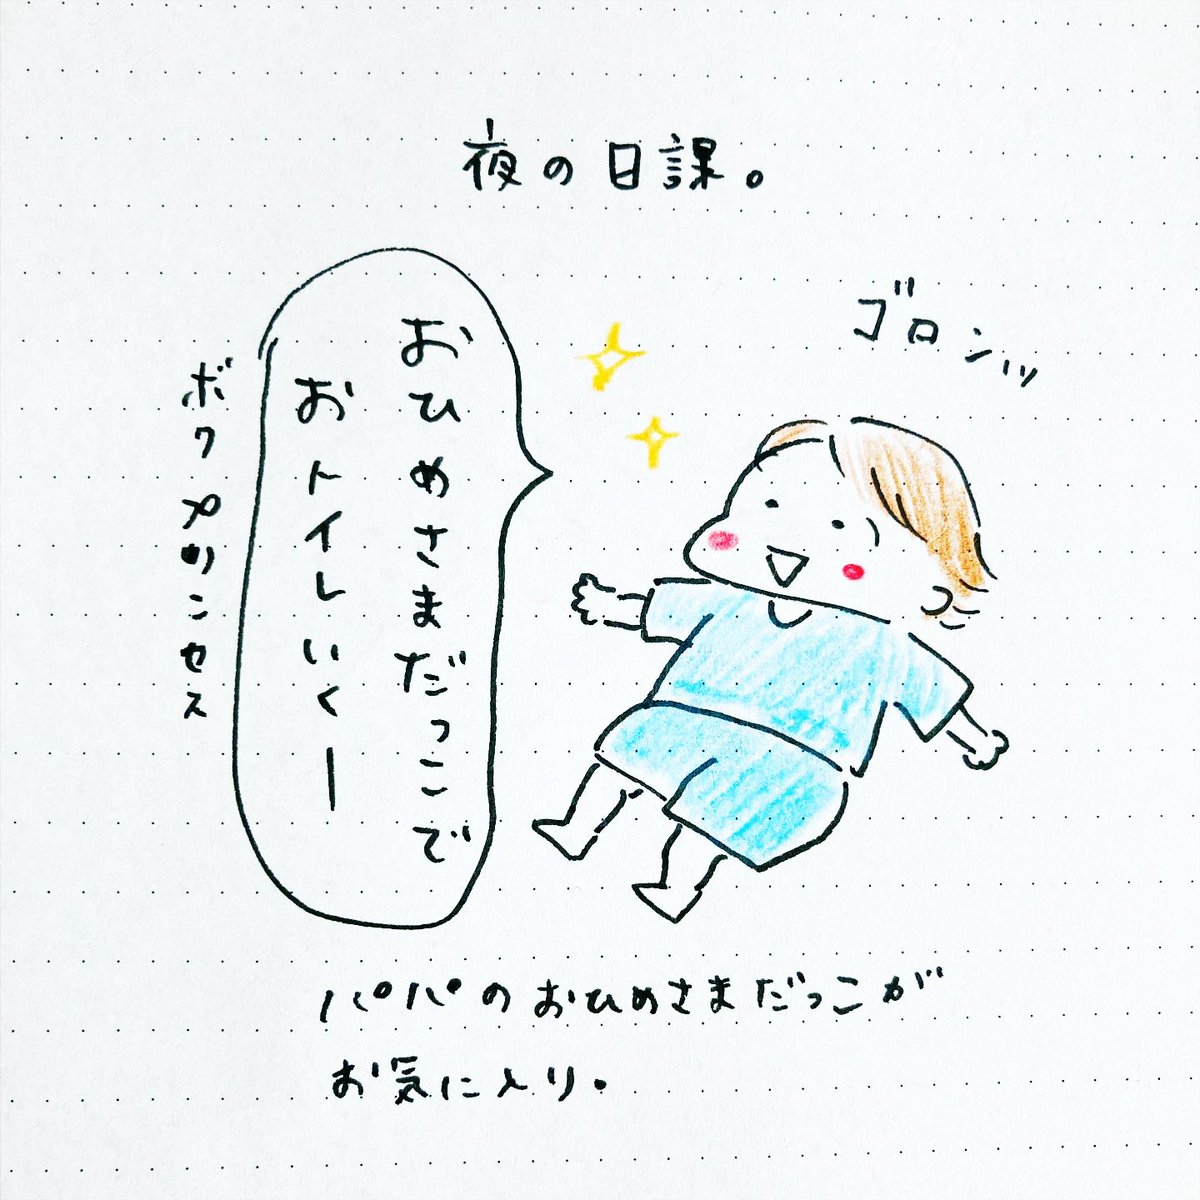 夜の日課。
ゴロンッ
おひめさまだっこで
おトイレいくー
ボクプリンセス
パパのおひめさまだっこが
お気に入り.